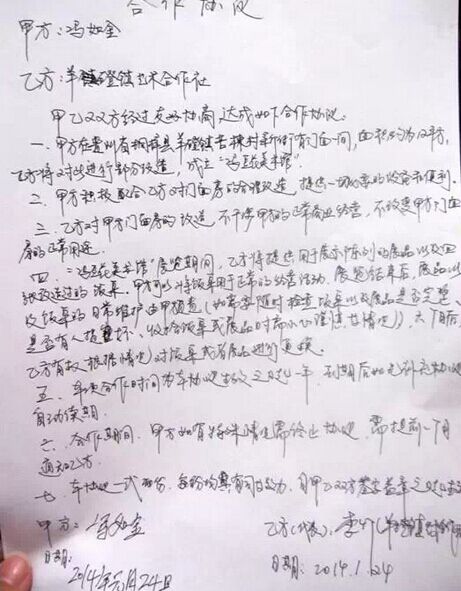 合作协议
甲方：冯如金
乙方：羊磴镇艺术合作社
甲乙双方经过友好协商，达成如下合作协议：
一、甲方在贵州省桐梓县羊磴镇 村新街有门面一间，面积约为 平方，
乙方将对此进行部分改造，成立“冯豆花美术馆”。
二、甲方积极配合乙方对门面房的合理改造，提供一切必要的 便利。
三、乙方对甲方门面房的改造，不干涉甲方的正常商业经营，不改变甲方门面
房的正常用途。
四、“冯豆花美术馆”展览期间，乙方将提供用于展示陈列的展品以及四
张改造过的饭桌。甲方可以将饭桌用于正常的经营活动。展览结束后，展品以
及饭桌的日常维护由甲方 （如需要随时检查饭桌以及展品是否完整、
是否有人损坏、收拾饭桌或展品时需小心谨慎 情况），六个月后，
乙方有权根据情况对饭桌或者展品进行更换。
五、本次合作时间为本协议生效之时起一年，到期后如无补充协议
自动续期。
六、合作期间，甲方如有特殊情况需终止协议，需提前一个月
通知乙方。
七、本协议一式两份，每份均具有同等效力，自甲乙双方签字盖章之时起生效
甲方：冯如金
乙方（代表）：李
日期：
2014年元月24日
日期：2014.1.24